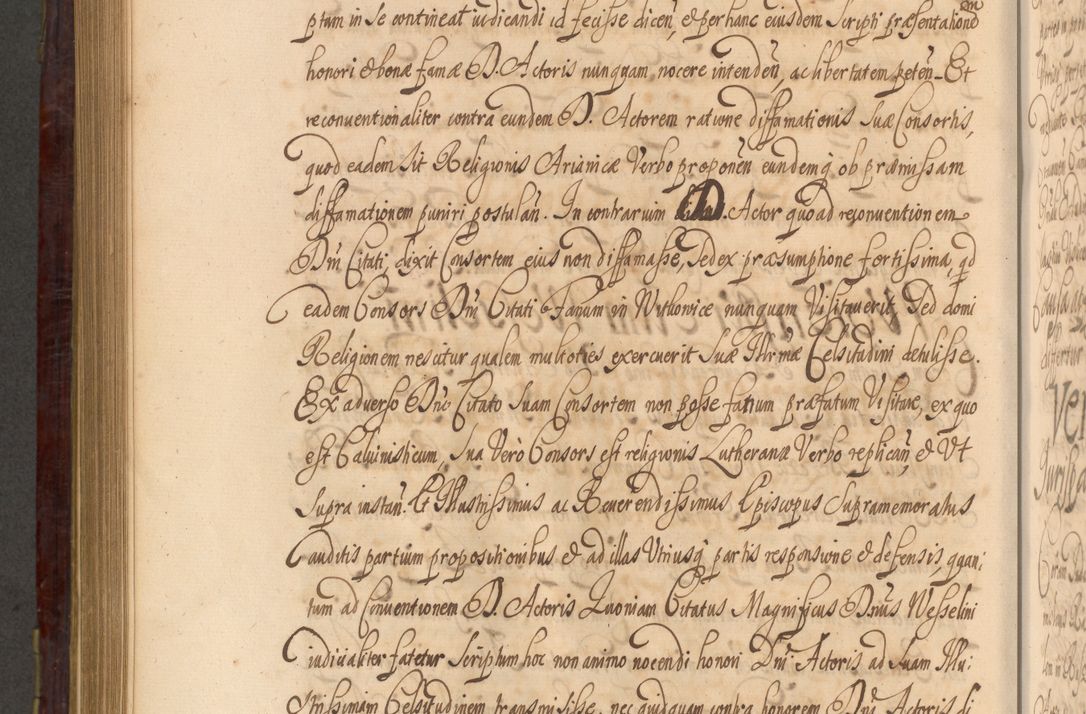 ptum in se contineat iudicandi id fecisse dicen̄, et per hanc eiusdem Scripti præsentationē
honori et bonæ famæ D. Actoris nunquam nocere intenden̄, ac libertatem peten̄ Et
reconventionaliter contra eundem D. Actorem ratione diffamationis Suæ Consortis,
quod eadem sit Religionis Arianicæ Verbo proponen̄ eundemq̨ ob præmissam
diffamationem puniri postulan̄. In contrarium D. Actor quoad reconventionem
Dn̄i Citati, dixit Consortem eius non diffamasse, Sed ex præsumptione fortissima, qd
eadem Consors Dn̄i Citati Fanum in Witkowice nunquam Visitauerit, Sed domi
Religionem nescitur qualem multoties exercuerit Suæ Illr̄mæ Celsitudini detulisse.
Ex adverso Dn̄o Citato Suam Consortem non posse fanum præfatum Visitare, ex quo
est Calvinisticum, Sua Verò Consors est religionis Lutheranæ Verbo replican̄, et Vt
Supra instan̄. Et Illustrissimus ac Reverendissimus Episcopus Supramemoratus
auditis partium propositionibus et ad illas Vtriusq̨ partis responsione et defensis, quan:
tum ad Conventionem D. Actoris Quoniam Citatus Magnificus Dn̄us Wesselini
iudicialiter fatetur Scriptum hoc non animo nocendi honori Dn̄i Actoris ad Suam Illu:
strissimam Celsitudinem transmisisse, nec quidquam contra honorem Dn̄i Actoris di